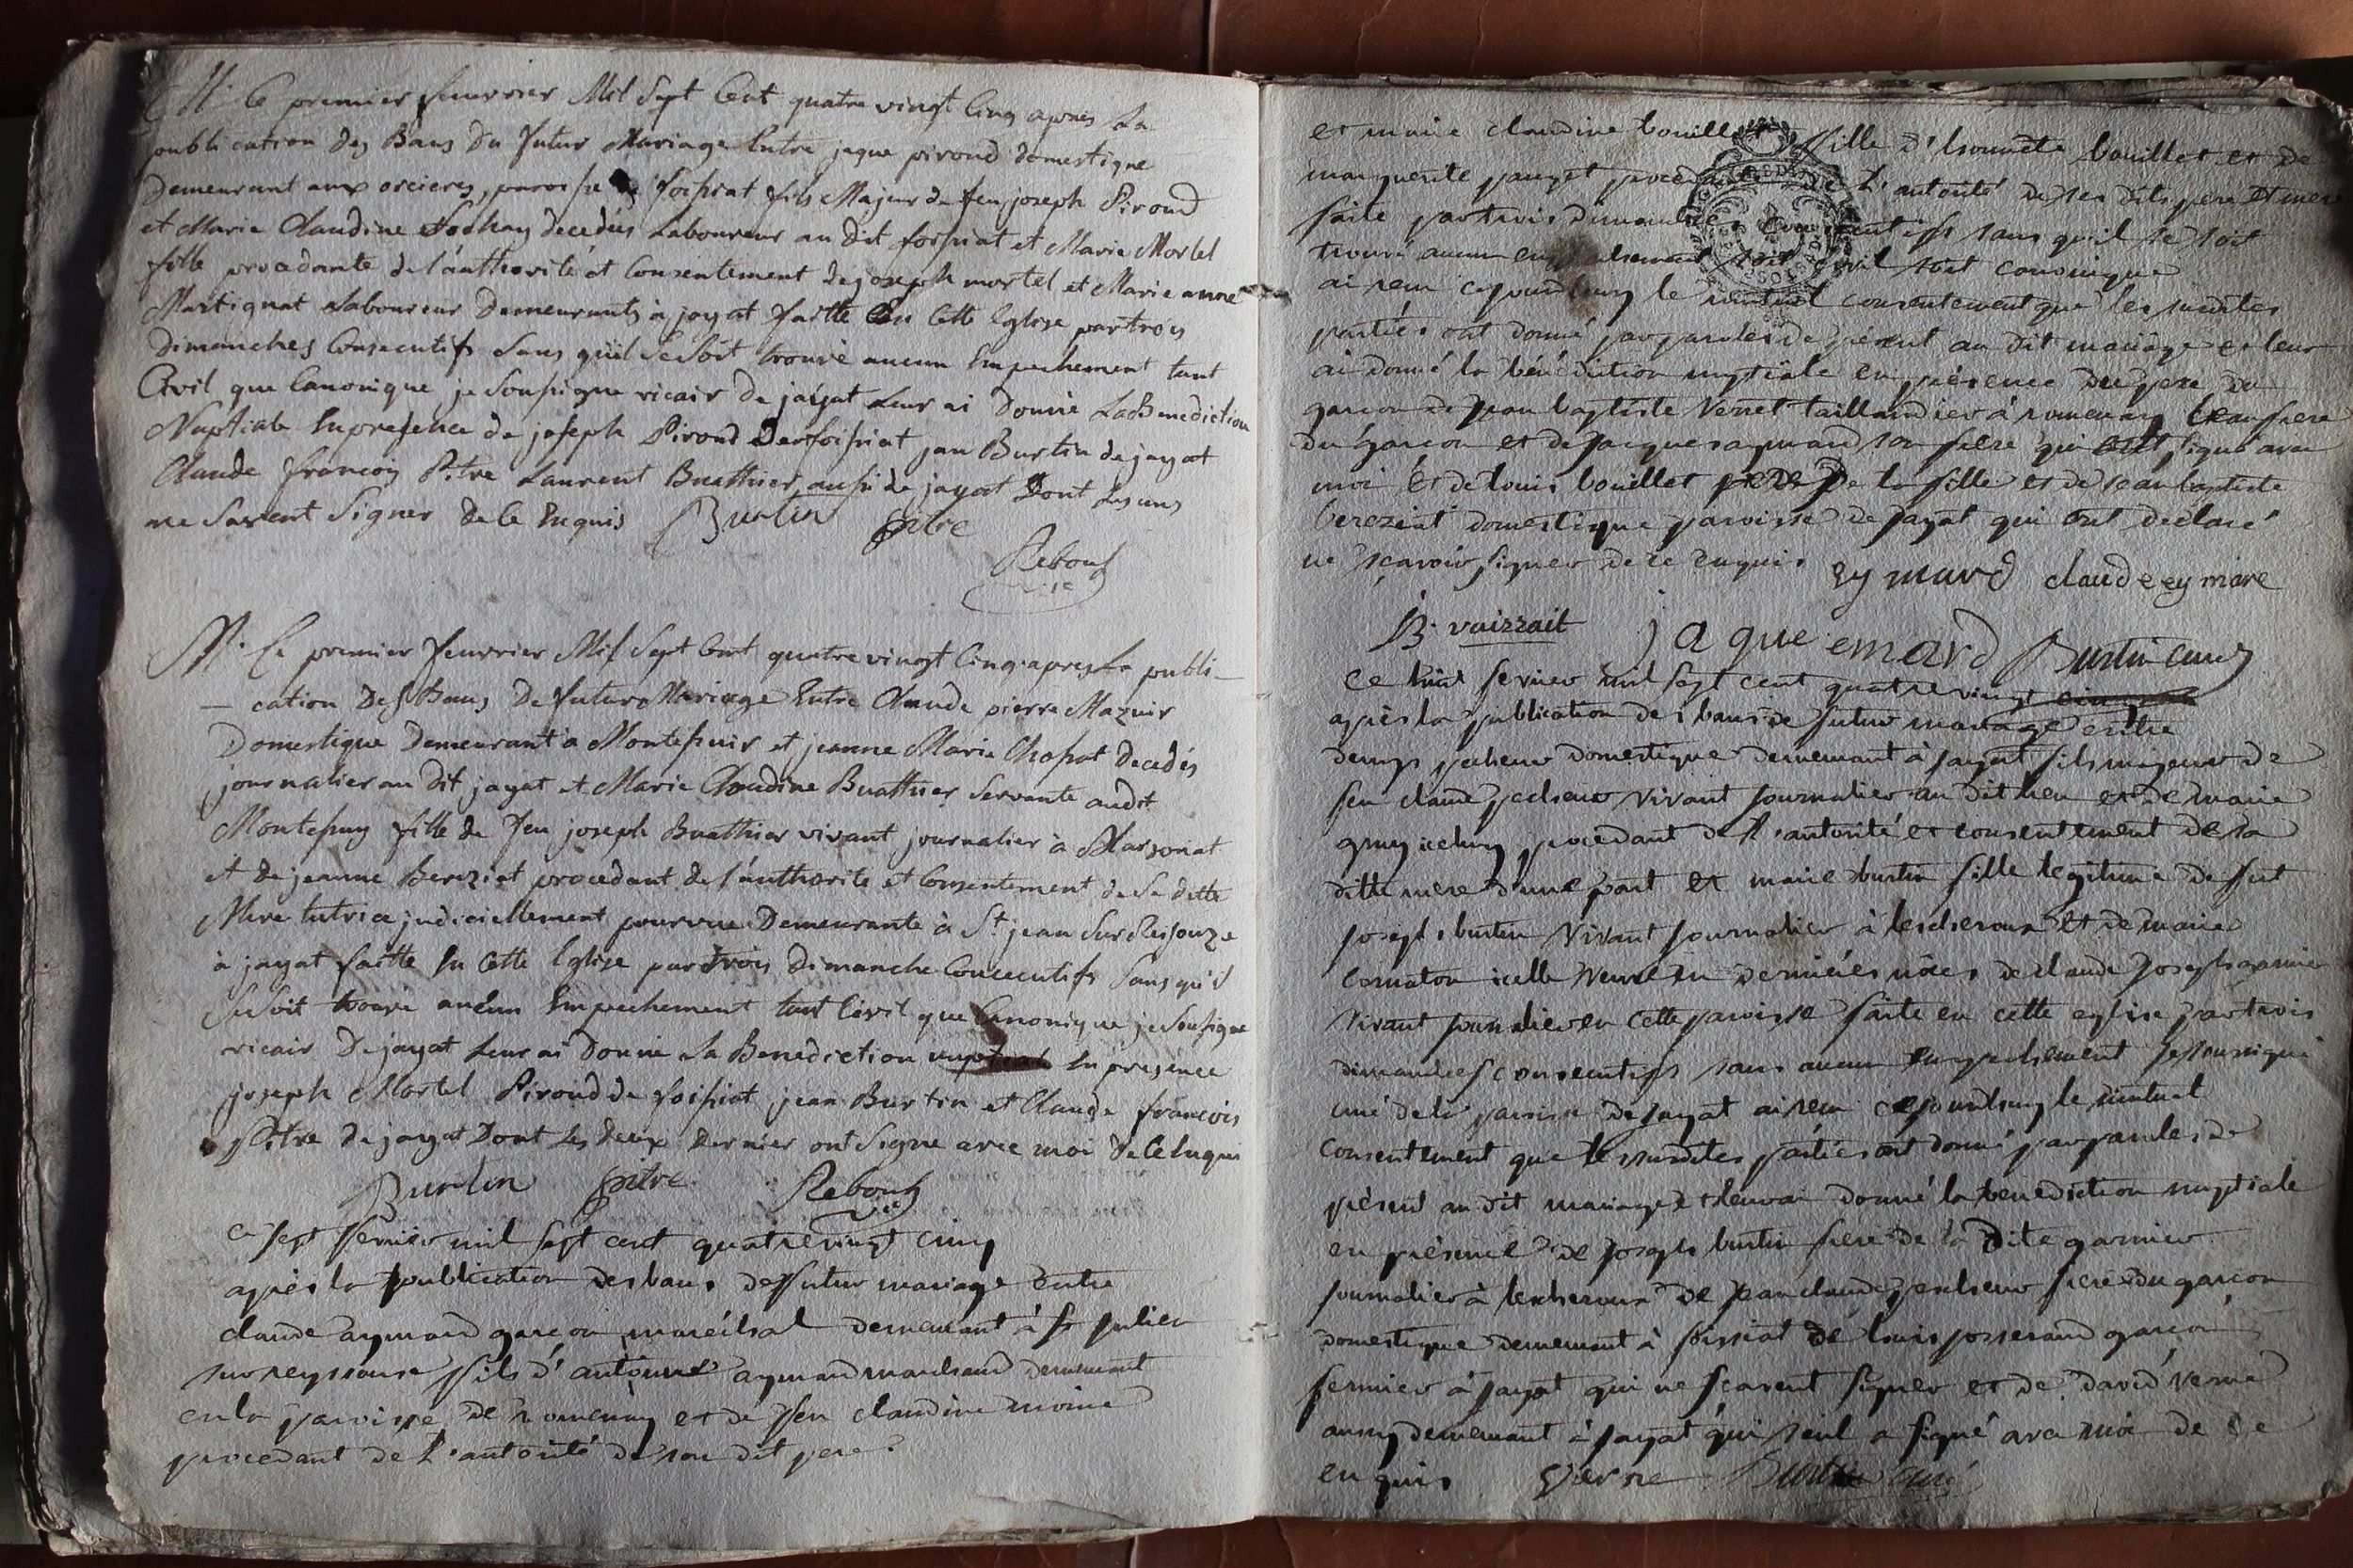 M. Ce premier feuvrier Mil Sept Cent quatre vingt Cinq apres La
publication Des Bans Du futur Mariage Entre jaque piroud domestique
Demeurant aux orcieres, paroisse foissiat fils Majeur de feu joseph Piroud
et Marie Claudine decedées Laboureur au Dit foissiat et Marie Mortel
fille procedante de l'authorité et Consentement de joseph mortel et Marie anne
Martignat Laboureur Demeurants à jayat faitte En Cette Eglise par trois
Dimanches Consecutifs Sans qüil Se Soit trouvé aucun Empechement tant
Civil que Canonique je Soussigne vicair De jaÿat Leur ai Donné La Benediction
Nuptiale En presence de joseph Piroud De foissiat jan Burtin de jayat
Claude francois Pitre Laurent Buathier aussi de jayat Dont Les uns
ne Savent Signer De Ce Enquis Burtin pitre
Reboux
vic
M. Ce premier feuvrier Mil Sept Cent quatre vingt Cinq apres La publi-
- cation Des Bans De futur Mariage Entre Claude pierre Mazuir
Domestique Demeurant a Montepuir et jeanne Marie Chossat Decedés
journalier au Dit jayat et Marie Claudine Buathier Servante audit
Montepuy fille de feu joseph Buathier vivant journalier à Marsonat
et de jeanne Bereziat procedant de l'authorite et Consentement de Sa ditte
Mere tutrice judiciellement pourvue Demeurante à St jean Sur Reisouze
à jayat faitte En Cette Eglise par trois Dimanche Concecutifs Sans qu'il
Se Soit trouvé aucun Empechement tant Civil que Canonique je Soussigne
vicair De jayat Leur ai Donné La Benediction nuptiale En presence
joseph Mortel Piroud de foissiat jean Burtin et Claude francois
Pitre de jayat Dont Les Deux Dernier ont Signe avec moi De Ce Enquis
Burtin pitre Reboux
vic
Ce sept fevrier mil sept cent quatre vingt cinq
après la publication des bans de futur mariage entre
claude aymard garçon maréchal demeurant à st julien
sur reyssouse fils d'antoine aymard marchand demeurant
en la paroisse de romenay et de feu claudine moine
procedant de l'autorité de son dit pere.
et marie claudine bouillet fille d'honnête bouillet et de
marguerite pauget procedante de l'autorité de ses dits pere et mere
faite par trois dimanches consecutifs sans qu'il se soit
trouvé aucun empechement soit civil soit canonique
ai reçu cejourdhuy le mutuel consentement que les susdites
parties ont donné par paroles de présent au dit mariage et leur
ai donné la bénédiction nuptiale en présence du pere du
garçon de jean baptiste verret taillandier à romenay beaufrere
du garçon et de jacque aymard son frere qui ont signé avec
moi et de louis bouillet pere de la fille et de jean baptiste
bereziat domestique paroisse de jayat qui ont declaré
ne sçavoir signer de ce enquis eymard claude eymare
B. voizzait jaque emard Burtin curé
ce huit fevrier mil sept cent quatre vingt cinq
après la publication des bans de futur mariage entre
denys pecheur domestique demeurant à jayat fils mineur de
feu claude pecheur vivant journalier au dit lieu et de marie
procedant de l'autorité et consentement de sa
ditte mere d'une part et marie burtin fille legitime de fut
joseph burtin vivant journalier à lescheroux et de marie
cornaton icelle veuve en dernières nôces de claude joseph garnier
vivant journalier en cette paroisse faite en cette eglise par trois
dimanches consecutifs sans aucun empechement je soussigné
curé de la paroisse de jayat ai reçu cejourdhuy le mutuel
consentement que les susdites parties ont donné par paroles de
présent au dit mariage et leur ai donné la benediction nuptiale
en présence de joseph burtin frere de la dite garnier
journalier à lescheroux de jean claude pecheur frere du garçon
domestique demeurant à foissiat de louis josserand garçon
fermier à jayat qui ne sçavent signer et de david verne
aussy demeurant à jayat qui seul a signé avec moi de ce
enquis Verne Burtin curé